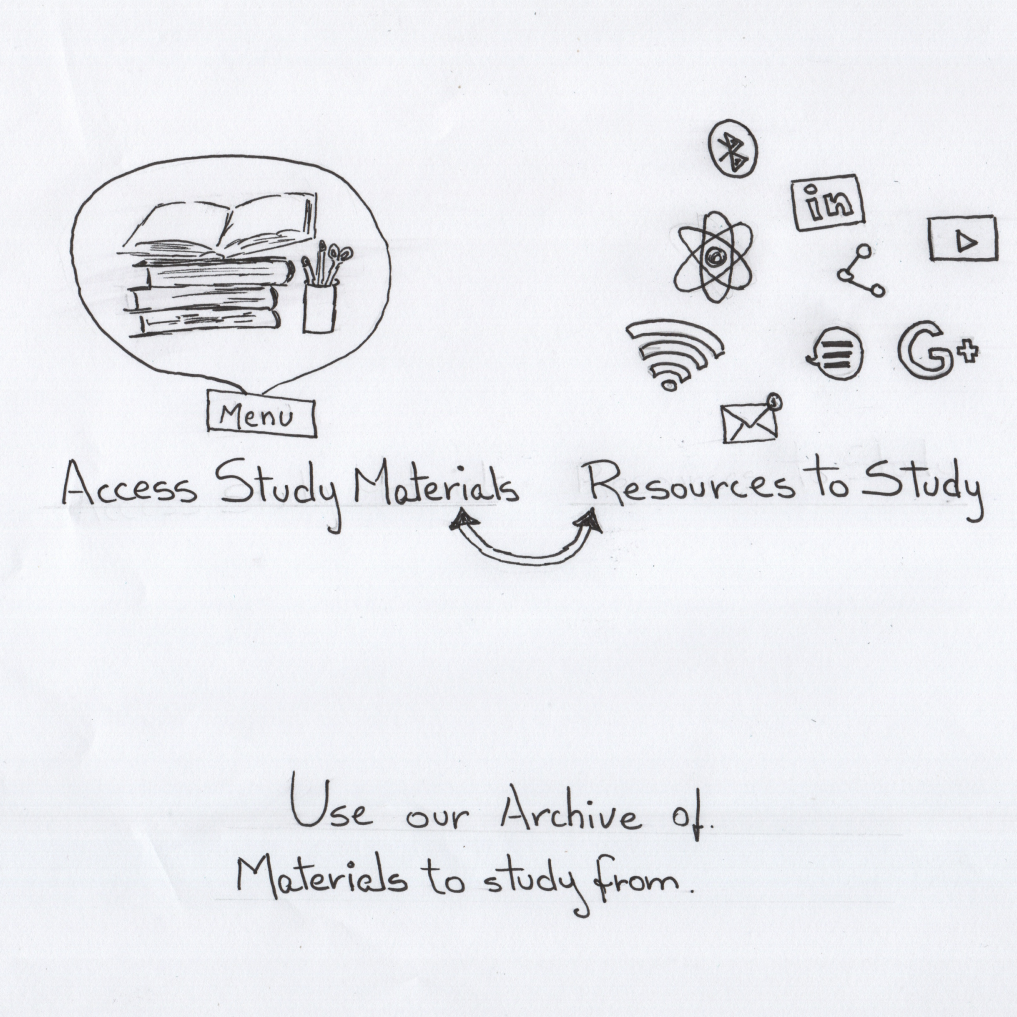 in
Menu
G+
Access Study Materials
Resources to Study
Use our Archive of.
Materials to study from.